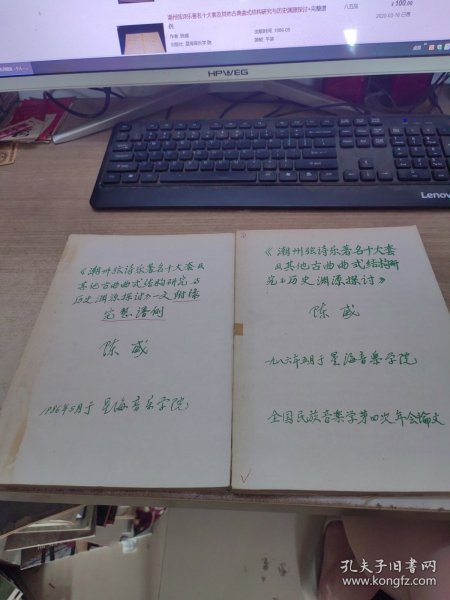 潮州弦诗乐著名十大套及其他古典曲式结构研究与历史渊源探讨+完整谱
例
作者 陈威
出版时间 1986-05
出版社 星海音乐学院
装帧 平装
八五品
¥100.00
2020-03-10 已售
HPWEG
Lenovo
《潮州弦诗乐著名十大套及
其他古曲曲式结构研究与
历史渊源探讨》一文附稿
完整谱例
陈威
1986年5月于星海音乐学院
《潮州弦诗乐著名十大套
及其他古曲曲式结构研
究与历史渊源探讨》
陈威
一九八六年五月于星海音乐学院
全国民族音乐学第四次年会论文
孔夫子旧书网
www.kongfz.com